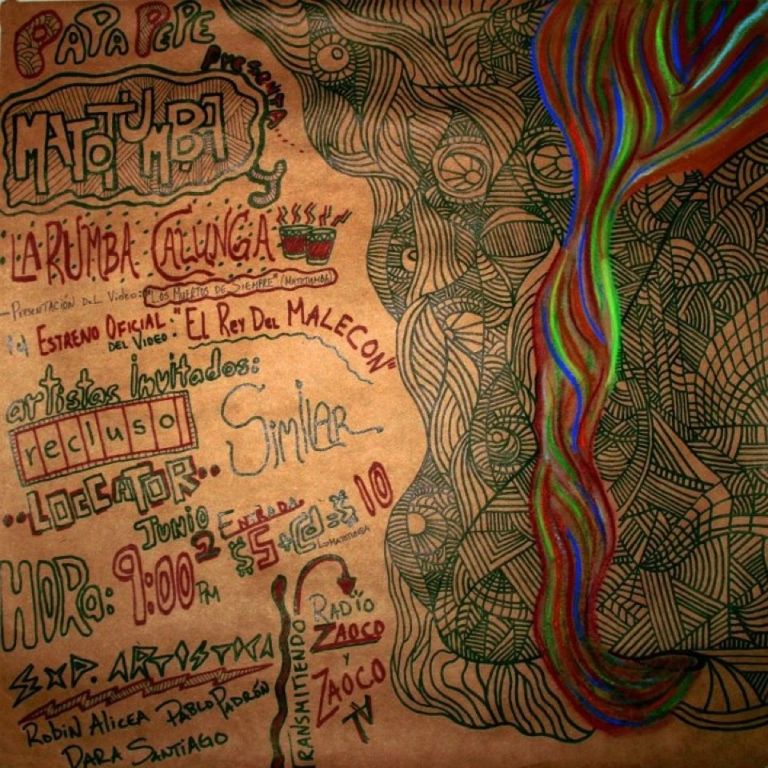 PAPA PEPE
PRESENTA...
MATOTUMBA
y
LA RUMBA CALUNGA
PRESENTACION DEL VIDEO: "LOS MUERTOS DE SIEMPRE" (MATOTUMBA)
ESTRENO OFICIAL DEL VIDEO: "EL REY DEL MALECON"
artistas invitados:
recluso
SIMILER
..LOCCATOR..
JUNIO 2
ENTRADA
$5 + CD = $10
HORA: 9:00 PM
EXP. ARTOSTOCA
ROBIN ALICEA PABLO PADRÓN
DARA SANTIAGO
TRANSMITIENDO
RADIO
ZAOCO
Y
ZAOCO
TV